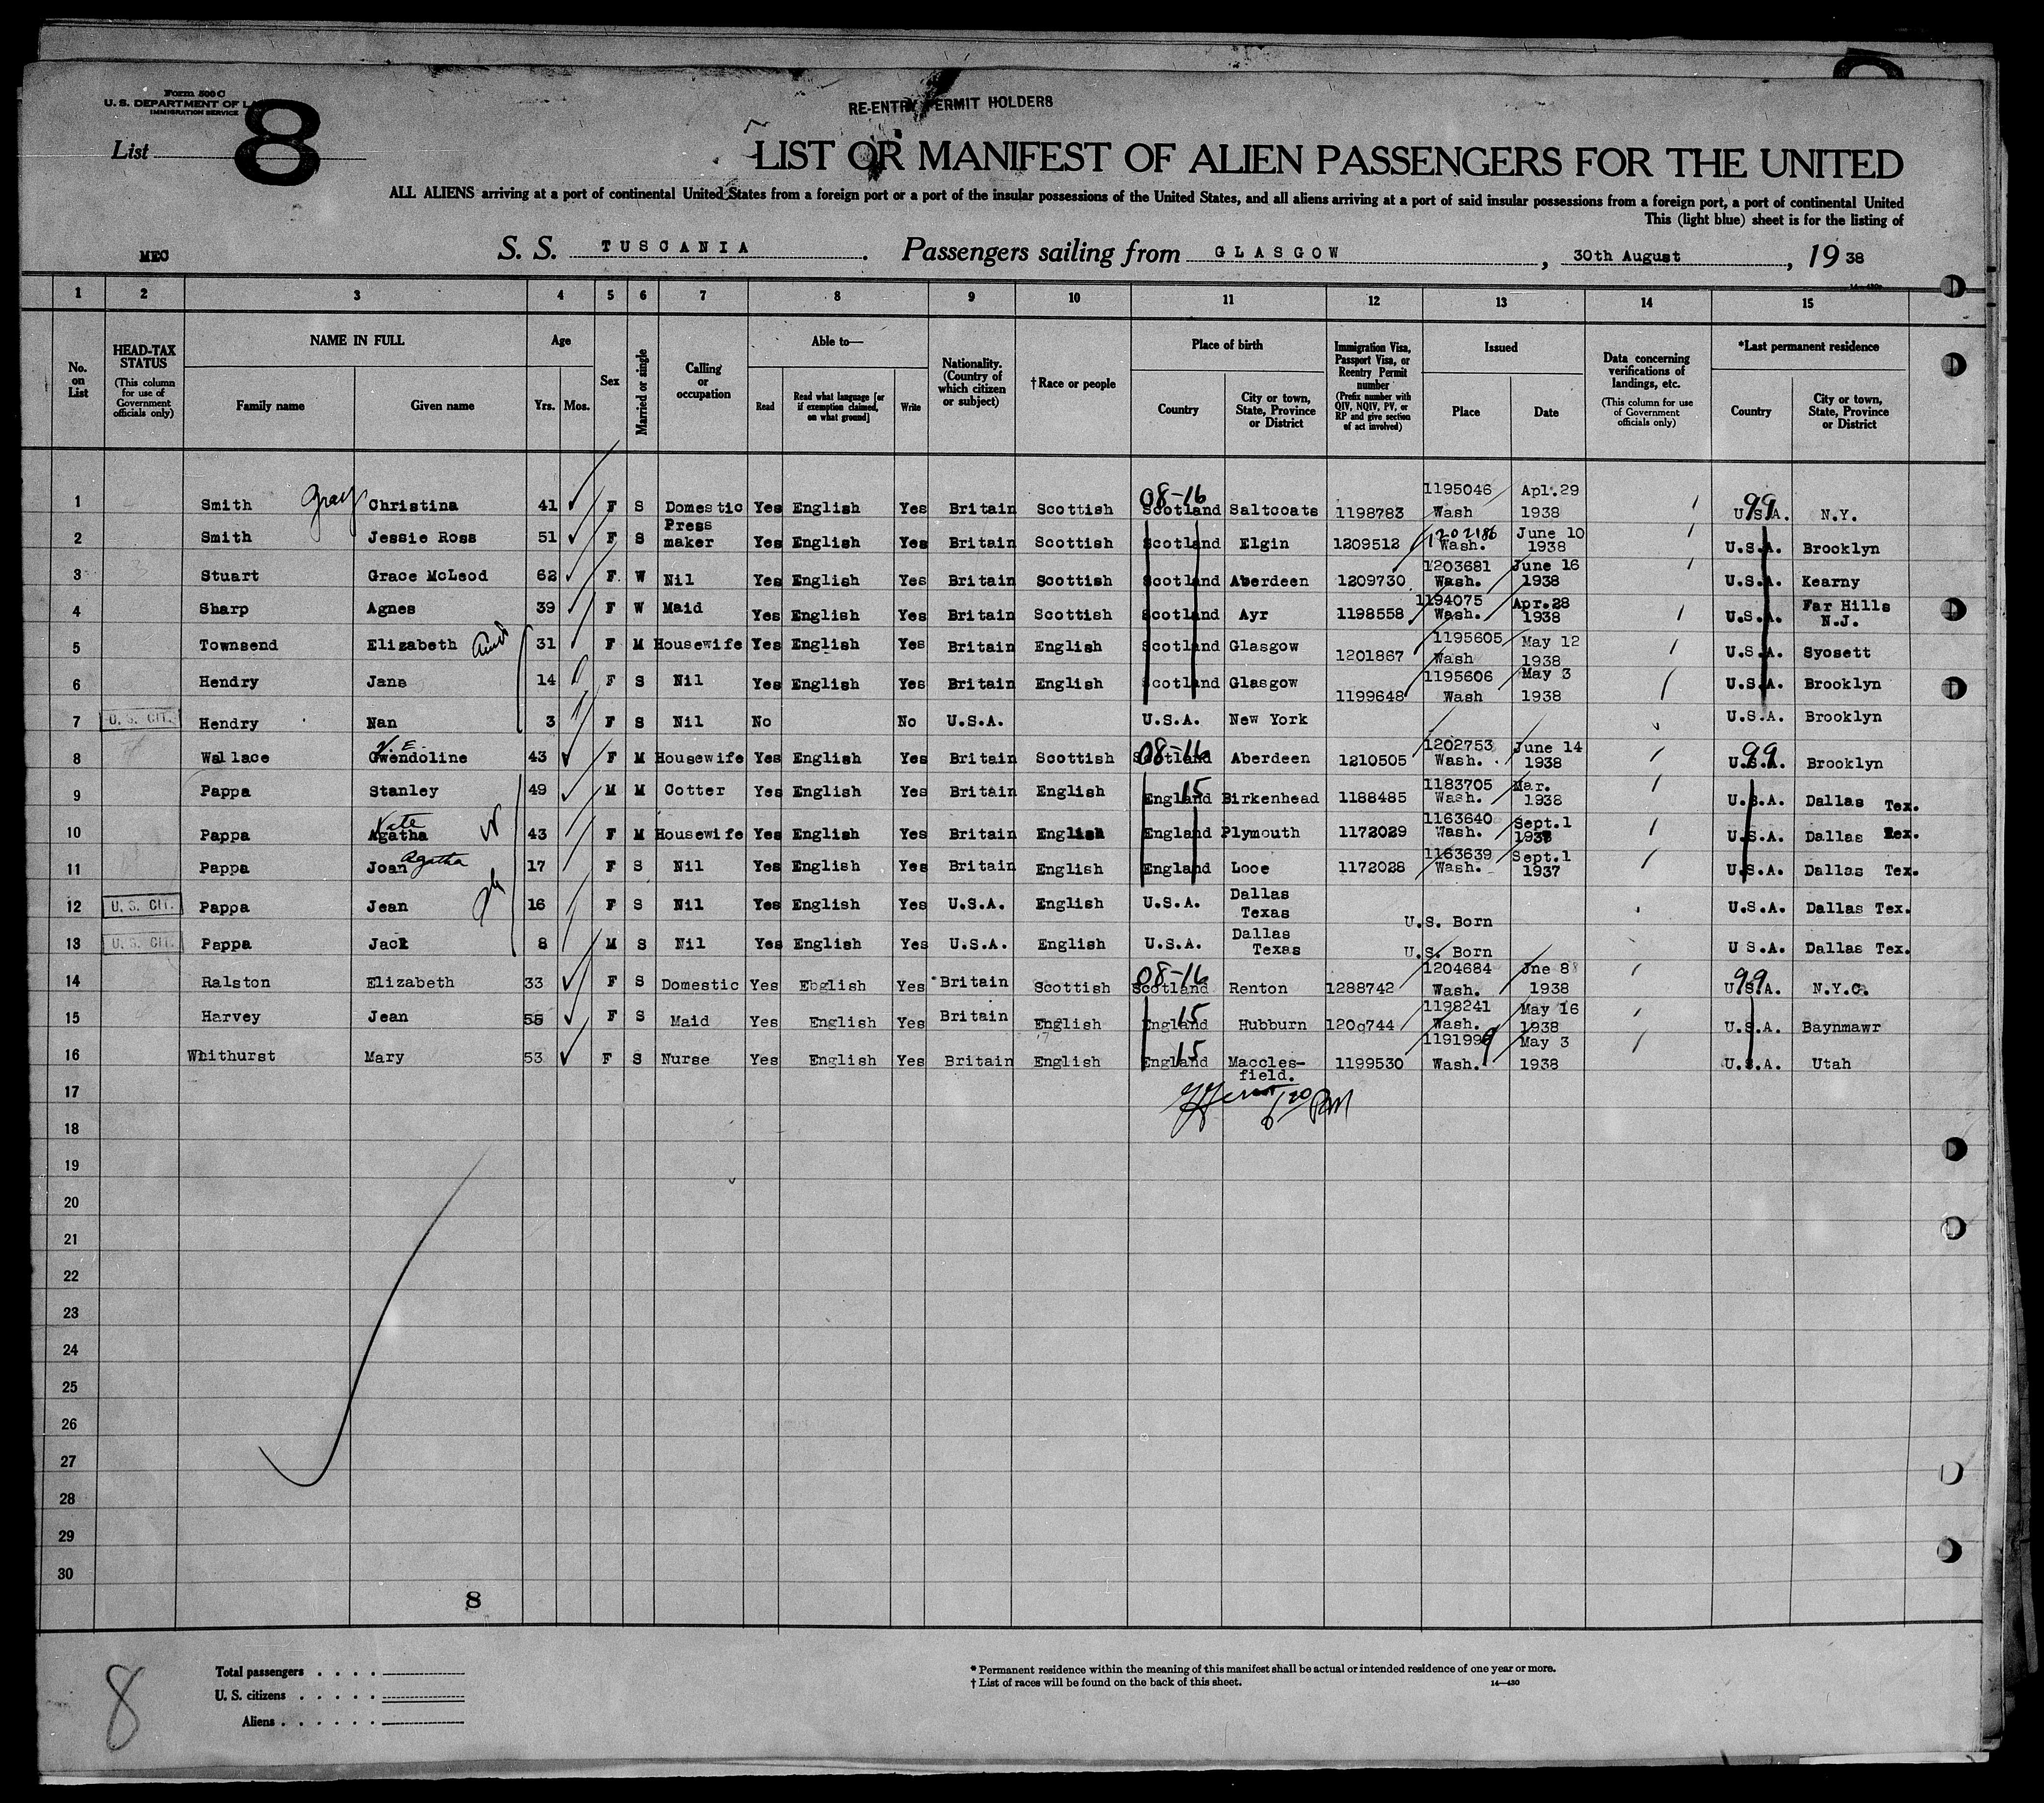 Form 500 C
U. S. DEPARTMENT OF LA
IMMIGRATION SERVICE
RE-ENTRY PERMIT HOLDERS
List 8
LIST OR MANIFEST OF ALIEN PASSENGERS FOR THE UNITED
ALL ALIENS arriving at a port of continental United States from a foreign port or a port of the insular possessions of the United States, and all aliens arriving at a port of said insular possessions from a foreign port, a port of continental United
This (light blue) sheet is for the listing of
MEC S. S. TUSCANIA. Passengers sailing from GLASGOW, 30th August, 19 38
1 2 3 4 5 6 7 8 9 10 11 12 13 14 15
No. on List
HEAD-TAX STATUS (This column for use of Government officials only)
NAME IN FULL Family name Given name
Age Yrs. Mos.
Sex
Married or single
Calling or occupation
Able to— Read Read what language [or if exemption claimed, on what ground] Write
Nationality. (Country of which citizen or subject)
†Race or people
Place of birth Country City or town, State, Province or District
Immigration Visa, Passport Visa, or Reentry Permit number (Prefix number with QIV, NQIV, PV, or RP and give section of act involved)
Issued Place Date
Data concerning verifications of landings, etc. (This column for use of Government officials only)
*Last permanent residence Country City or town, State, Province or District
1 Smith Gray Christina 41 F S Domestic Yes English Yes Britain Scottish 08-16 Scotland Saltcoats 1198783 1195046 Wash Apl.29 1938 99 U.S.A. N.Y.
2 Smith Jessie Ross 51 F S Press maker Yes English Yes Britain Scottish Scotland Elgin 1209512 1202186 Wash. June 10 1938 U.S.A. Brooklyn
3 Stuart Grace McLeod 62 F. W Nil Yes English Yes Britain Scottish Scotland Aberdeen 1209730 1203681 Wash. June 16 1938 U.S.A. Kearny
4 Sharp Agnes 39 F W Maid Yes English Yes Britain Scottish Scotland Ayr 1198558 1194075 Wash. Apr.28 1938 U.S.A. Far Hills N.J.
5 Townsend Elizabeth Aunt 31 F M Housewife Yes English Yes Britain English Scotland Glasgow 1201867 1195605 Wash May 12 1938 U.S.A. Syosett
6 Hendry Jane 14 F S Nil Yes English Yes Britain English Scotland Glasgow 1199648 1195606 Wash May 3 1938 U.S.A. Brooklyn
7 U. S. CIT. Hendry Nan 3 F S Nil No No U.S.A. U.S.A. New York U.S.A. Brooklyn
8 Wallace V. E. Gwendoline 43 F M Housewife Yes English Yes Britain Scottish 08-16 Scotland Aberdeen 1210505 1202753 Wash. June 14 1938 99 U.S.A. Brooklyn
9 Pappa Stanley 49 M M Cotter Yes English Yes Britain English 15 England Birkenhead 1188485 1183705 Wash. Mar. 1938 U.S.A. Dallas Tex.
10 Pappa Kate Agatha 43 F M Housewife Yes English Yes Britain English England Plymouth 1172029 1163640 Wash. Sept.1 1937 U.S.A. Dallas Tex.
11 Pappa Joan Agatha 17 F S Nil Yes English Yes Britain English England Looe 1172028 1163639 Wash. Sept.1 1937 U.S.A. Dallas Tex.
12 U. S. CIT. Pappa Jean 16 F S Nil Yes English Yes U.S.A. English U.S.A. Dallas Texas U.S. Born U.S.A. Dallas Tex.
13 U. S. CIT. Pappa Jack 8 M S Nil Yes English Yes U.S.A. English U.S.A. Dallas Texas U.S. Born U S.A. Dallas Tex.
14 Ralston Elizabeth 33 F S Domestic Yes Ebglish Yes Britain Scottish 08-16 Scotland Renton 1288742 1204684 Wash. Jne 8 1938 99 U.S.A. N.Y.C.
15 Harvey Jean 55 F S Maid Yes English Yes Britain English 15 England Hubburn 120g744 1198241 Wash. May 16 1938 U.S.A. Baynmawr
16 Whithurst Mary 53 F S Nurse Yes English Yes Britain English 15 England Maccles-field. 1199530 1191999 Wash. May 3 1938 U.S.A. Utah
17
18
19
20
21
22
23
24
25
26
27
28
29
30
8
8
Total passengers . . . .
U. S. citizens . . . . .
Aliens . . . . . .
* Permanent residence within the meaning of this manifest shall be actual or intended residence of one year or more.
† List of races will be found on the back of this sheet.
14—430